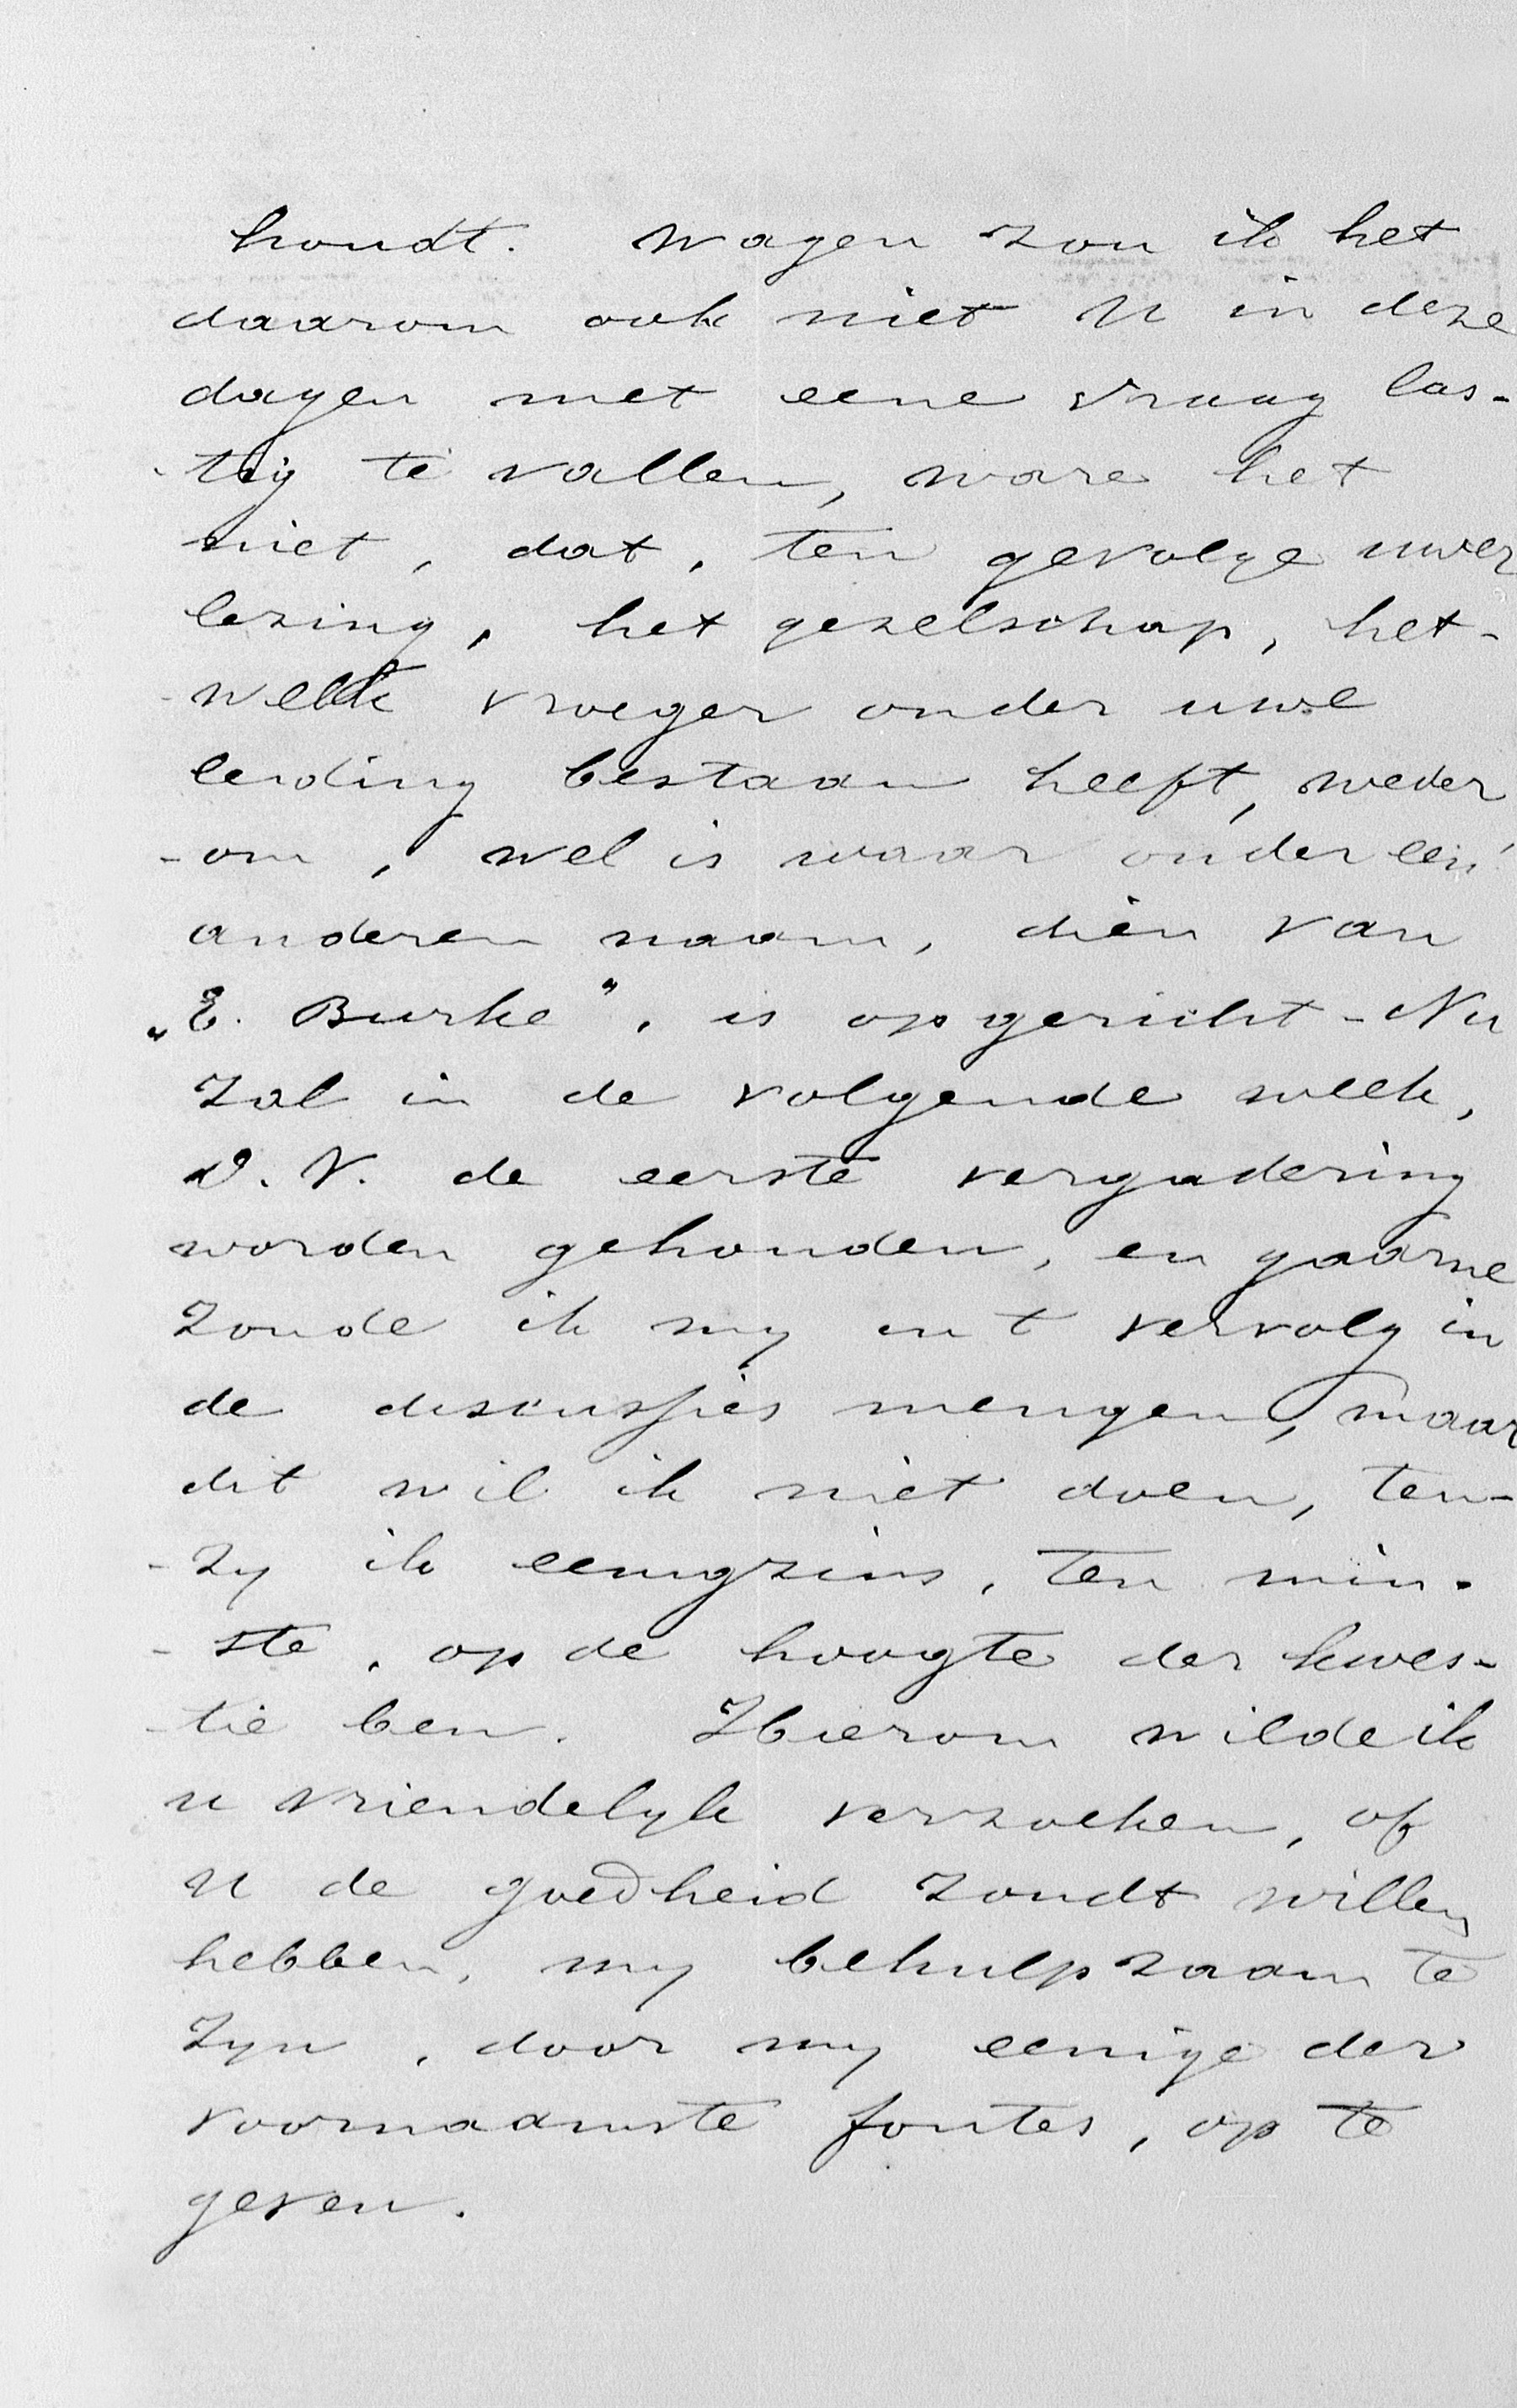 houdt. Wagen zou ik het
daarom ook niet U in deze
dagen met eene vraag las-
-tig te vallen, ware het
niet, dat, ten gevolge uwer
lezing, het gezelschap, het-
-welk vroeger onder uwe
leiding bestaan heeft, weder
-om, wel is waar onder een
anderen naam, dien van
„E. Burke”, is opgericht - Nu
zal in de volgende week,
D. V. de eerste vergadering
worden gehouden, en gaarne
zoude ik my in t vervolg in
de discussies mengen, maar
dit wil ik niet doen, ten-
-zy ik eenigzins, ten min-
-ste, op de hoogte der kwes-
-tie ben. Hierom wilde ik
u vriendelyk verzoeken, of
U de goedheid zoudt willen
hebben, my behulpzaam te
zyn, door my eenige der
voornaamste fontes, op te
geven.